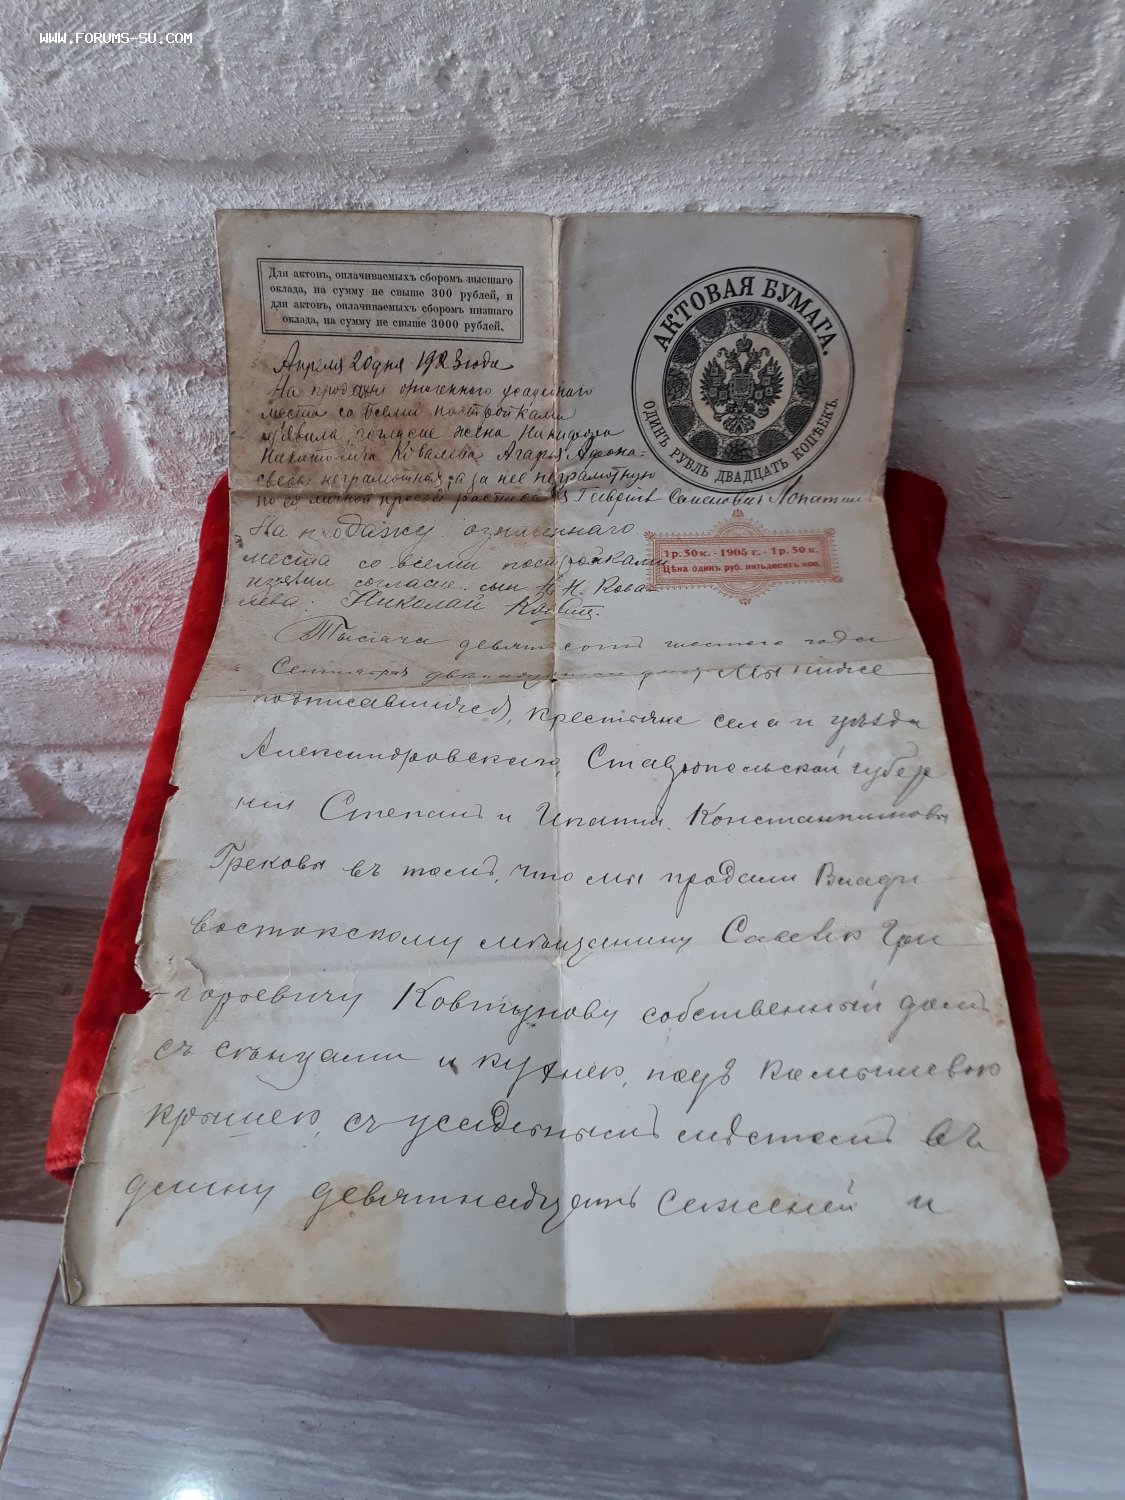 WWW.FORUMS-SU.COM
Для актовъ, оплачиваемыхъ сборомъ высшаго
оклада, на сумму не свыше 300 рублей, и
для актовъ, оплачиваемыхъ сборомъ низшаго
оклада, на сумму не свыше 3000 рублей.
АКТОВАЯ БУМАГА.
ОДИНЪ РУБЛЬ ДВАДЦАТЬ КОПѢЕКЪ.
Апреля 20 дня 1923 года
На продажи означенного усадебного
места со всеми постройками
из'явила согласие жена Никифора
Ковалева Агафья Афона-
сьева неграмотная, а за нее неграмотную
по ее личной просьбе Гаврiил Семенович Лопатин
1 р. 50 к. - 1905 г. - 1 р. 50 к.
Цѣна одинъ руб. пятьдесятъ коп.
На продажу означеннаго
места со всеми постройками
из'явил согласие сын Н. Кова-
лева: Николай
Тысяча девятьсотъ шестого года
Сентября дня, Мы ниже
подписавшиеся, крестьяне села и уѣзда
Александровскаго, Ставропольской губер
нiи Степанъ и Игнатiй Константиновы
Грековы въ томъ, что мы продали Влади
востокскому мѣщанину Савелiю Гри
горьевичу Ковтунову собственный домъ
съ сѣнцами и кухнею, подъ камышевою
крышею, съ усадьнымъ мѣстомъ въ
длину девятнадцать саженей и